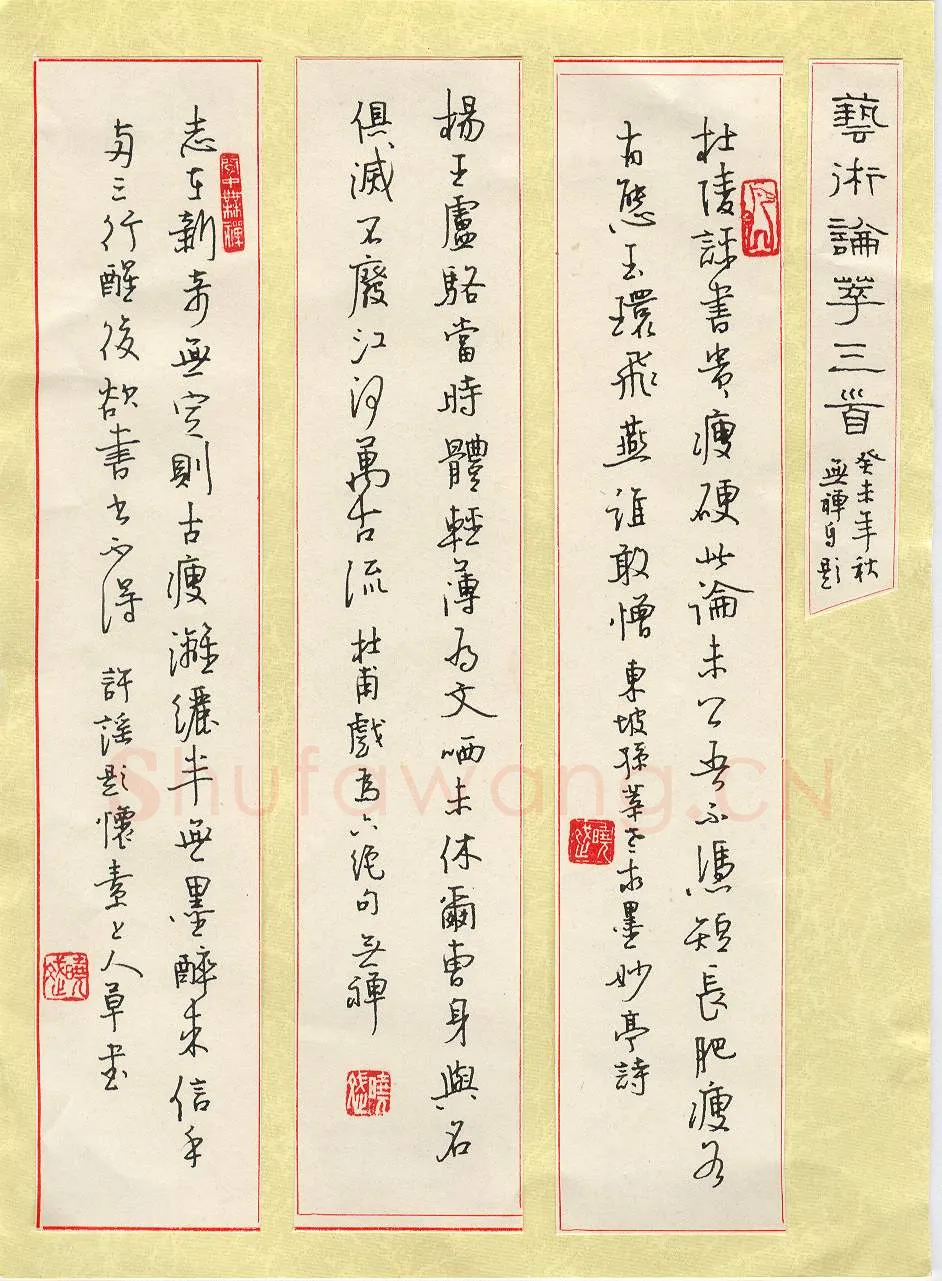 藝術論萃三首
癸未年秋
無禪自題
杜陵評書貴瘦硬此論未公吾不憑短長肥瘦各
有態玉環飛燕誰敢憎 東坡孫莘老求墨妙亭詩
楊王盧駱當時體輕薄為文哂未休爾曹身與名
俱滅不廢江河萬古流 杜甫戲為六絕句 无禪
志在新奇無定則古瘦灕纚半無墨醉來信手
兩三行醒後欲書書不得 許謠題懷素上人草書
Shufawang.CN